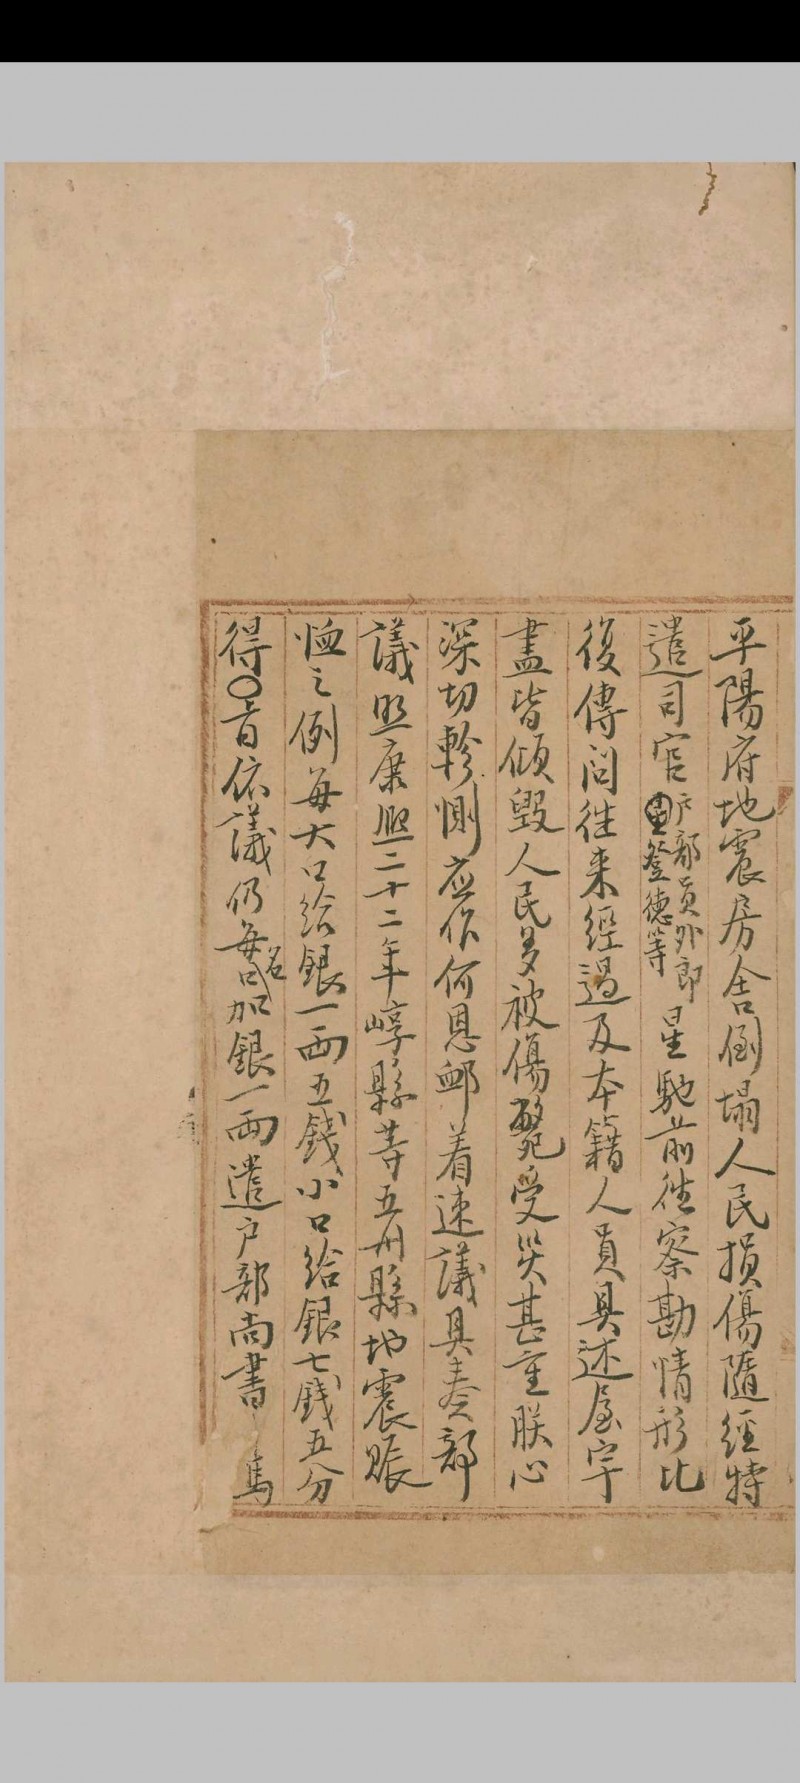 平陽府地震房舍倒塌人民損傷隨經特
遣司官戶部員外郎登德等星馳前徃察勘情形比
復傳问徃来經過及本籍人員具述屋宇
盡皆傾毀人民多被傷斃受災甚重朕心
深切軫惻应作何恩䘏着速議具奏部
議照康熙二十二年崞縣等五州縣地震賑
恤之例每大口給銀一両五錢小口給銀七錢五分
得○㫖依議仍每名口加銀一両遣户部尚書馬